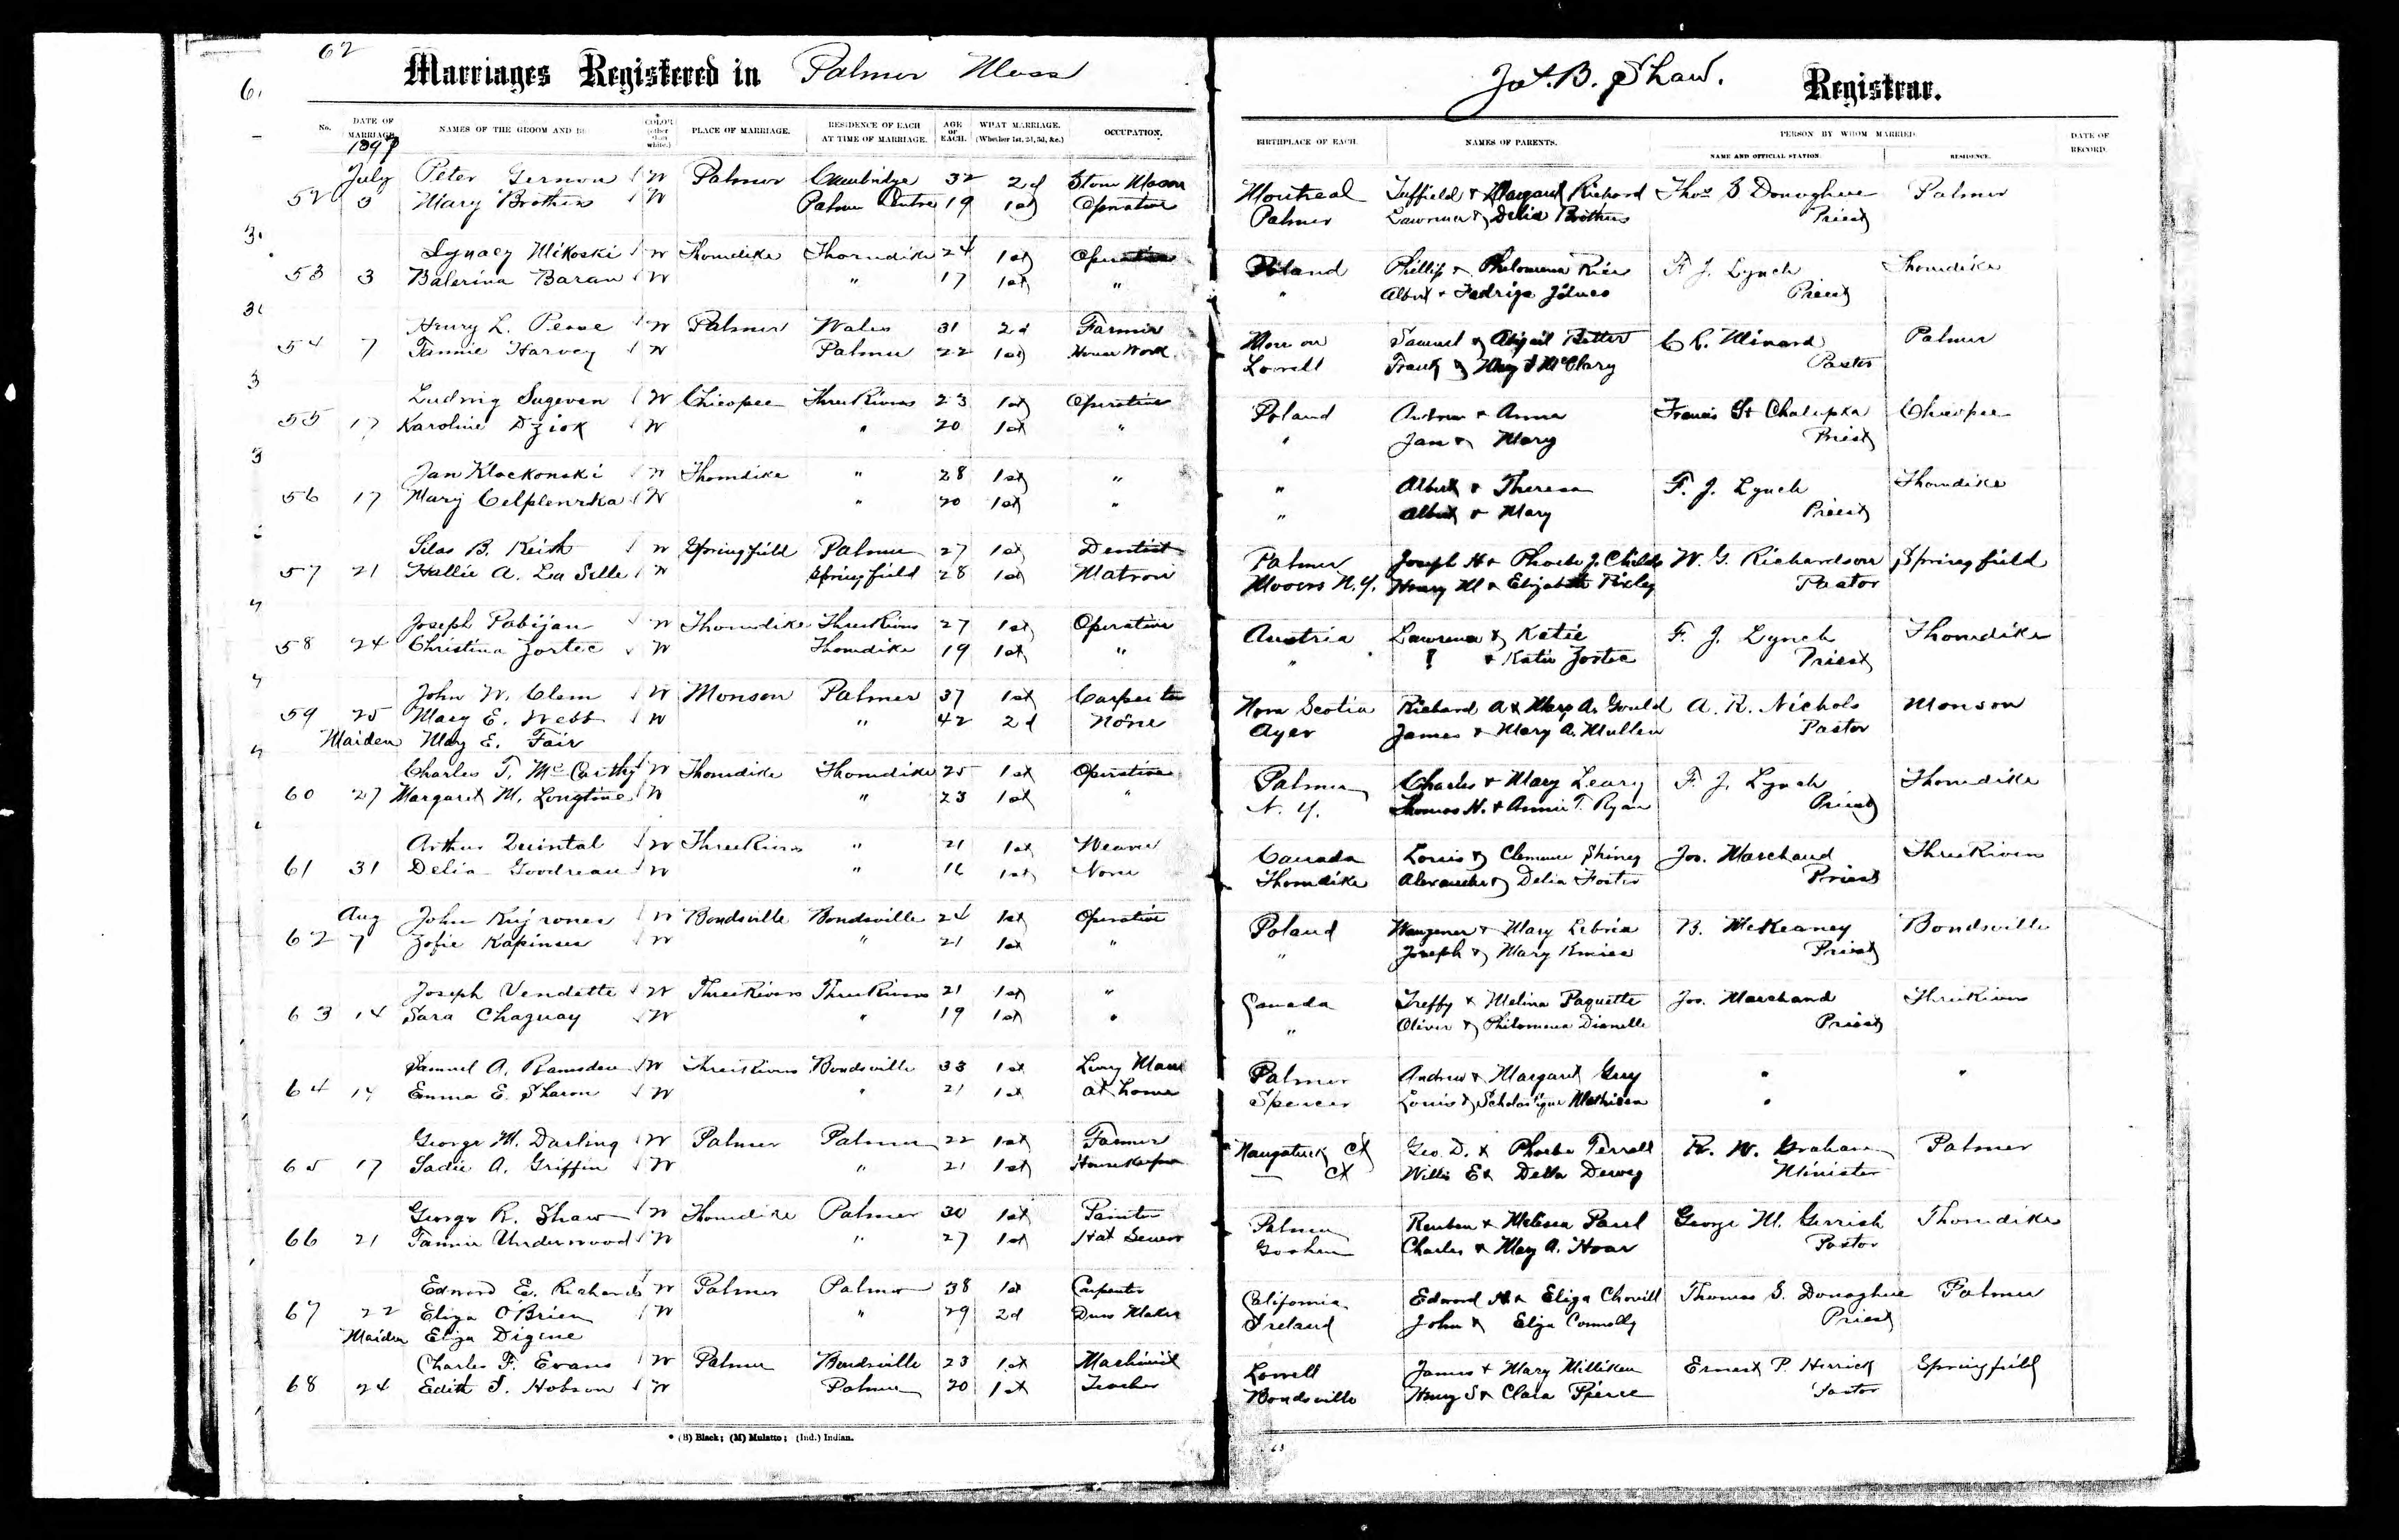 62
Marriages Registered in Palmer Mass
Registrar.
No. DATE OF MARRIAGE. NAMES OF THE GROOM AND COLOR (other than white.) PLACE OF MARRIAGE. RESIDENCE OF EACH AT TIME OF MARRIAGE. AGE OF EACH. WHAT MARRIAGE. (Whether 1st, 2d, 3d, &c.) OCCUPATION.
BIRTHPLACE OF EACH. NAMES OF PARENTS. PERSON BY WHOM MARRIED. NAME AND OFFICIAL STATION. RESIDENCE. DATE OF RECORD.
July Peter Gernon W Palmer 32 2d Stone Mason Montreal Richard Thos S Donoghue Palmer
52 3 Mary Brothers W Palmer Centre 19 1st Operative Palmer Lawrence & Delia Brothers Priest
Mikoski W Thorndike Thorndike 24 1st Operative Poland Phillip & Philomena F. J. Lynch Thorndike
53 3 Balerina Baran W " 17 1st " " Albert & Priest
Henry L. Pease W Palmer Wales 31 2d Farmer Samuel & Abigail C. L. Minard Palmer
54 7 Fannie Harvey W Palmer 22 1st House Work Lowell Frank & McClary Pastor
Ludwig W Chicopee Three Rivers 23 1st Operative Poland Andrew & Anna Chalupka Chicopee
55 17 Karoline W " 20 1st " " Jan & Mary Priest
Jan W Thorndike " 28 1st " " Albert & Theresa F. J. Lynch Thorndike
56 17 Mary W " 20 1st " " Albert & Mary Priest
Silas B. Keith W Springfield Palmer 27 1st Dentist Palmer Joseph H & Phoebe J. Childs W. G. Richardson Springfield
57 21 Hallie A. La Selle W Springfield 28 1st Matron Mooers N.Y. Henry M & Elizabeth Pixley Pastor
Joseph Pobijan W Thorndike Three Rivers 27 1st Operative Austria Lawrence & Katie F. J. Lynch Thorndike
58 24 Christina Zortec W Thorndike 19 1st " " ? & Katie Zortec Priest
John W. Clem W Monson Palmer 37 1st Carpenter Nova Scotia Richard A & Mary A. Gould A. R. Nichols Monson
59 25 Mary E. Webb W " 42 2d None Ayer James & Mary A. Mullen Pastor
Maiden Mary E. Fair
Charles T. McCarthy W Thorndike Thorndike 25 1st Operative Palmer Charles & Mary Leary F. J. Lynch Thorndike
60 27 Margaret M. W " 23 1st " N. Y. Thomas H. & Annie T. Ryan Priest
Arthur Quintal W Three Rivers " 21 1st Weaver Canada Louis & Jos. Marchand Three Rivers
61 31 Delia Goodreau W " 1st None Thorndike Alexander & Delia Foster Priest
Aug John W Bondsville Bondsville 24 1st Operative Poland & Mary B. McKeaney Bondsville
62 7 Zofie W " 21 1st " " Joseph & Mary Priest
Joseph Vendette W Three Rivers Three Rivers 21 1st " Canada Treffy & Melina Paquette Jos. Marchand Three Rivers
63 14 Sara Chaguay W " 19 1st " " Oliver & Philomena Priest
Samuel A. Ramsdew W Three Rivers Bondsville 33 1st Palmer Andrew & Margaret " "
64 14 Emma E. Sharon W " 21 1st at home Spencer Louis & "
George M. Darling W Palmer Palmer 22 1st Farmer Naugatuck Ct Geo. D. & Phoebe Terrell R. W. Graham Palmer
65 17 Sadie A. Griffin W " 21 1st Housekeeper — Ct Willis E & Della Dewey Minister
George R. Shaw W Thorndike Palmer 30 1st Painter Palmer Reuben & Melissa George M. Gerrish Thorndike
66 21 Fannie Underwood W " 27 1st Hat Sewer Goshen Charles & Mary A. Hoar Pastor
Edward E. Richards W Palmer Palmer 38 1st Carpenter California Edward H & Eliza Thomas S. Donoghue Palmer
67 22 Eliza O'Brien W " 29 2d Dress Maker Ireland John & Eliza Connolly Priest
Maiden Eliza Digine
Charles F. Evans W Palmer Bondsville 23 1st Machinist Lowell James & Mary Milliken Ernest P. Herrick Springfield
68 24 Edith S. Hobson W Palmer 20 1st Teacher Bondsville Henry S & Clara Pierce Pastor
* (B) Black; (M) Mulatto; (Ind.) Indian.